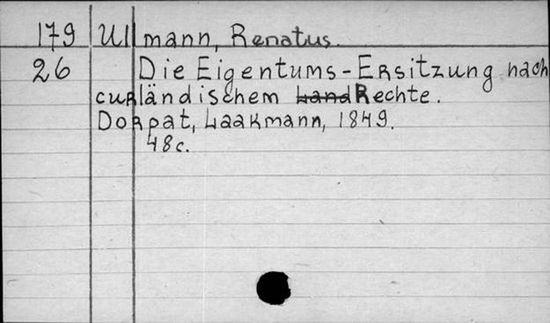 179 Ullmann, Renatus.
26 Die Eigentums-Ersitzung nach
curländischem Land Rechte.
Dorpat, Laakmann, 1849.
48c.